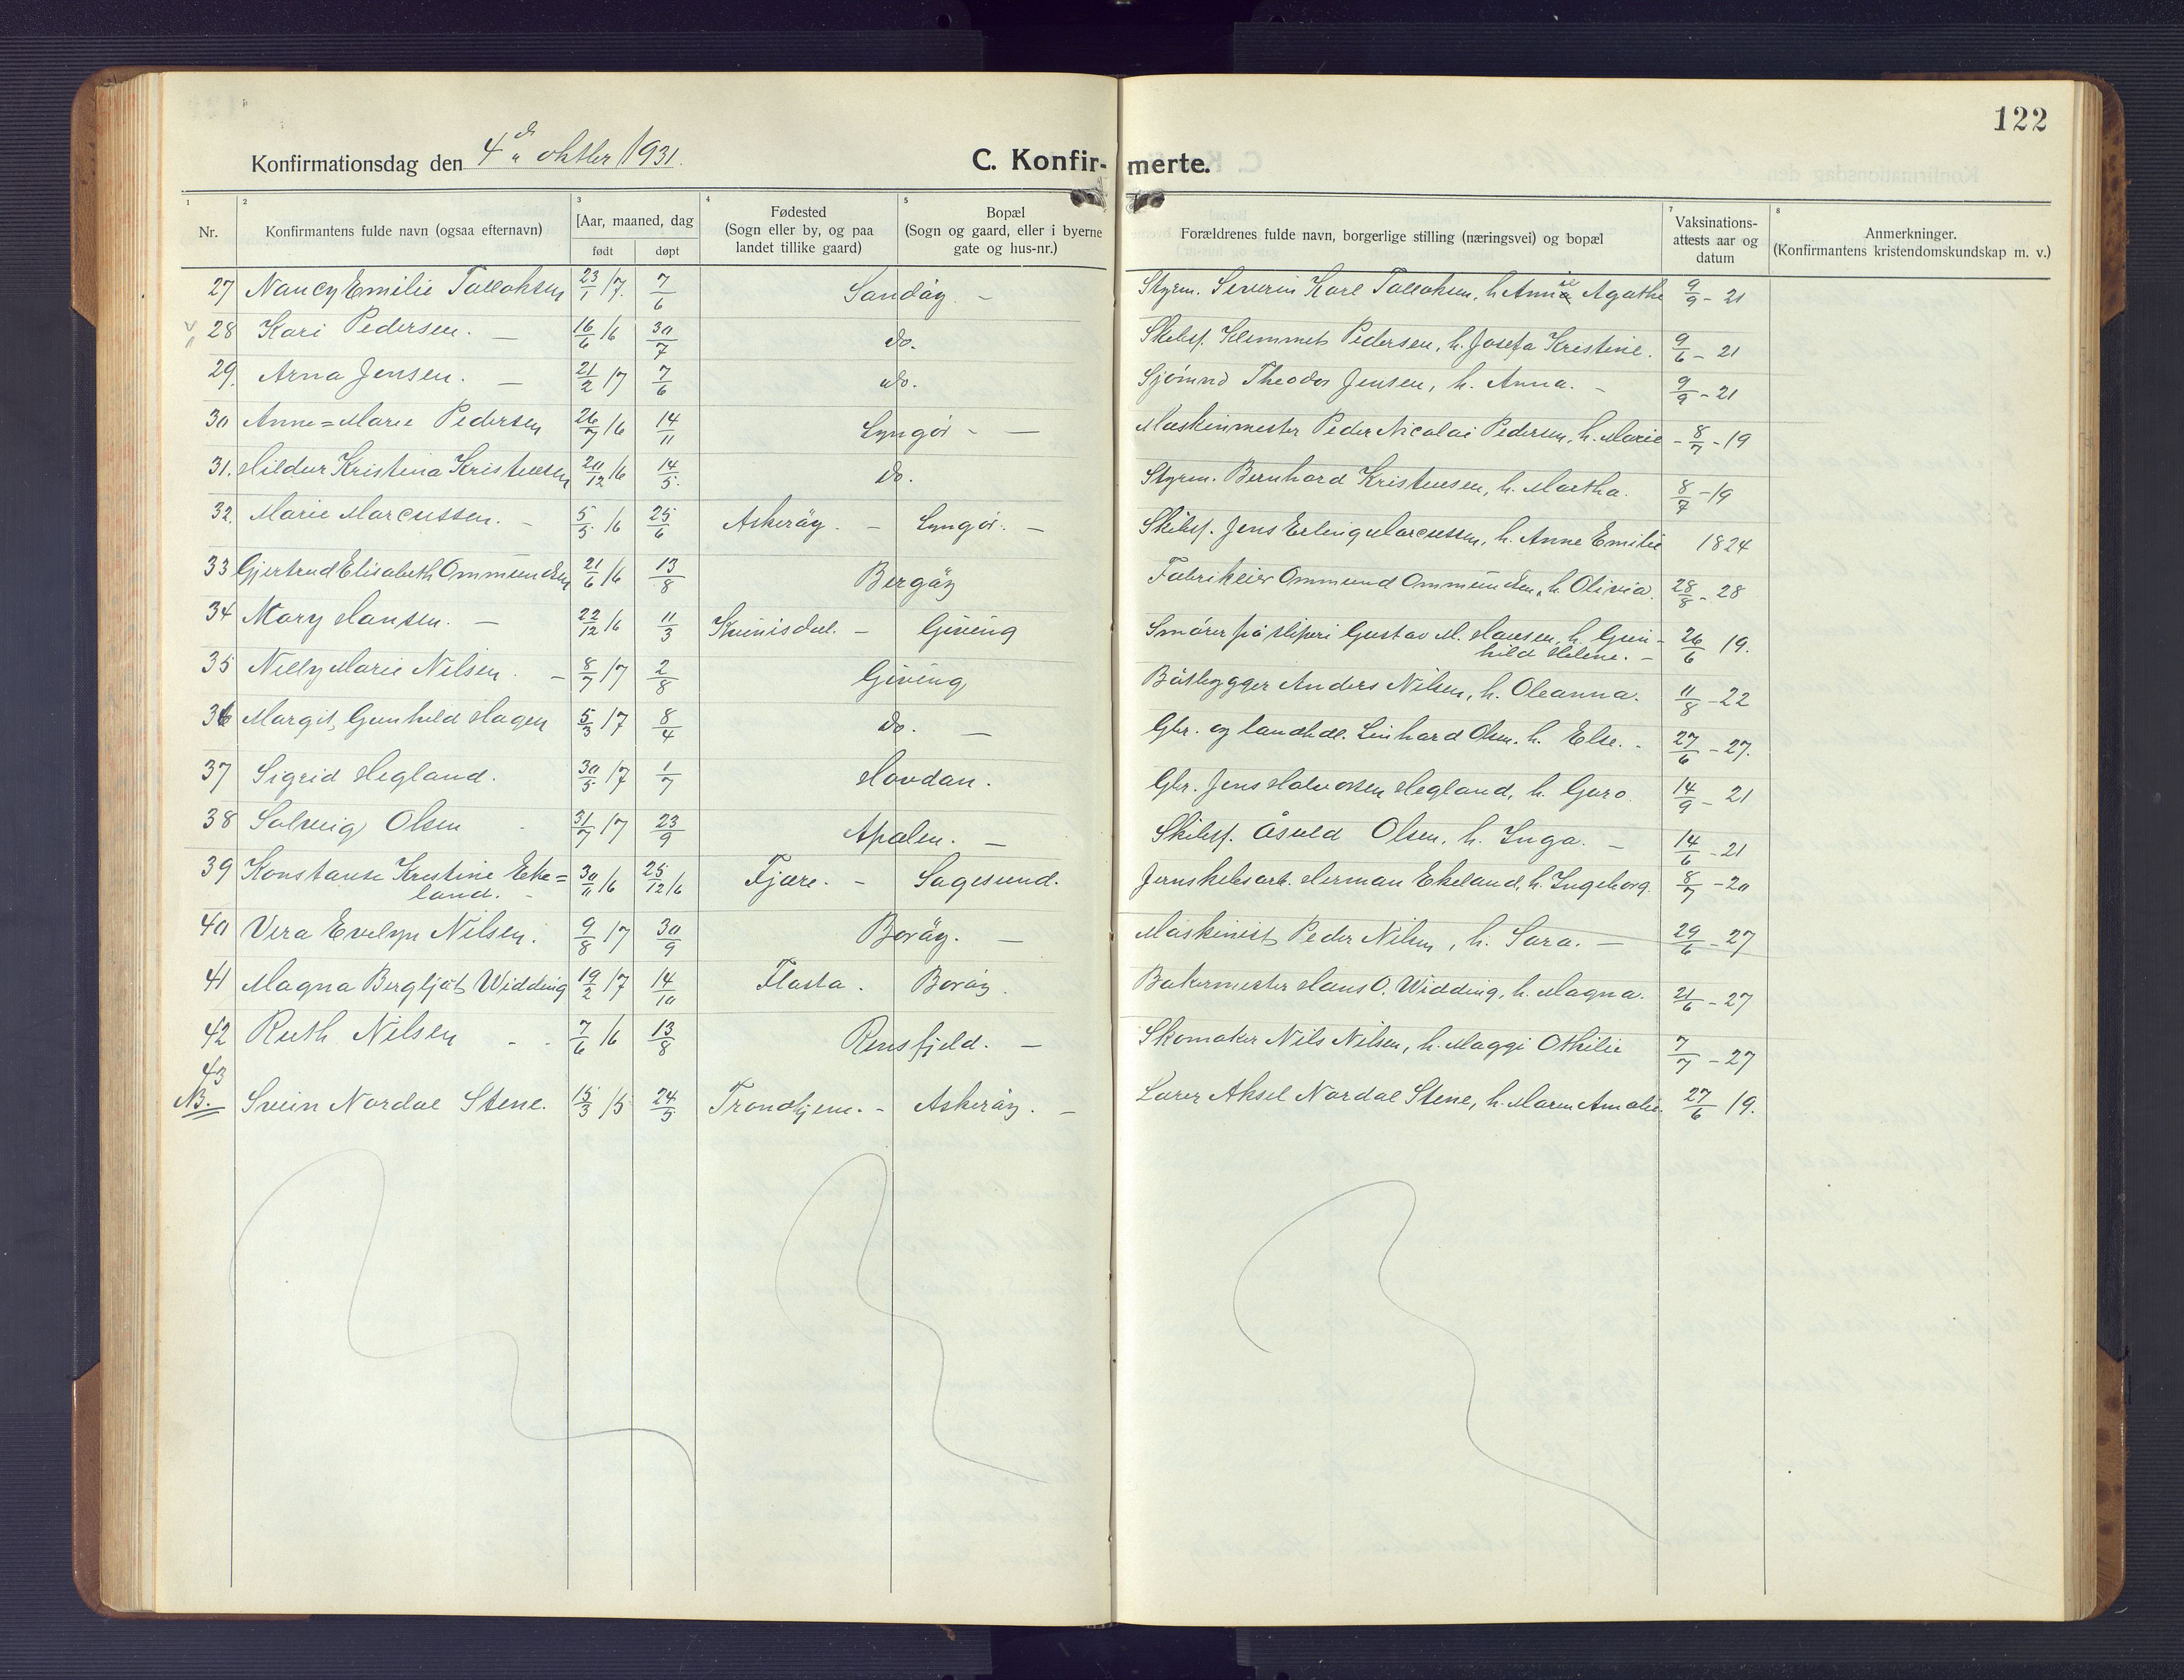 122
Konfirmationsdag den 4de oktbr 1931.
C. Konfir- merte.
1 2 3 4 5 7 8
Nr.
Konfirmantens fulde navn (ogsaa efternavn)
[Aar, maaned, dag
født døpt
Fødested
(Sogn eller by, og paa
landet tillike gaard)
Bopæl
(Sogn og gaard, eller i byerne
gate og hus-nr.)
Forældrenes fulde navn, borgerlige stilling (næringsvei) og bopæl
Vaksinations-
attests aar og
datum
Anmerkninger.
(Konfirmantens kristendomskundskap m. v.)
27 Nancy Emilie Tallaksen 23/1 17. 7/6 Sandøy. - Styrm. Severin Karl Tallaksen, h. Anne Agathe 9/9 - 21
28 Kari Pedersen. - 16/6 16 30/7 do. Skibsf. Klemmet Pedersen, h. Josefa Kristine. 9/6 - 21
29. Arna Jensen. - 21/2 17 7/6 do. Sjømnd Theodor Jensen, h. Anna. - 9/9 - 21
30 Anne=Marie Pedersen 26/7 16 14/11 Lyngør - - Maskinmester Peder Nicolai Pedersen, h. Marie - 8/7 - 19
31. Hildur Kristina Kristensen 20/12 16 14/5. do. Styrm. Bernhard Kristensen, h. Martha. 8/7 - 19
32. Marie Marcussen. - 5/5 16 25/6 Askerøy. - Lyngør. - Skibsf. Jens Erling Marcussen, h. Anne Emilie 1824
33 Gjertrud Elisabeth Ommundsen 21/6 16 13/8 Bergøy Fabrikeier Ommund Ommundsen, h. Olivia. 28/8 - 28
34 Mary Hansen. - 22/12 16 11/3 Kvinisdal. - Giving Smører på sliperi Gustav M. Hansen, h. Gun-
hild Helene. - 26/6 19.
35 Nelly Marie Nilsen. - 8/7 17 2/8 Giving Båtbygger Anders Nilsen, h. Oleanna. 11/8 - 22
36 Margit Gunhild Hagen 5/3 17 8/4 do. - Gbr. og landhdl. Linhard Olsen, h. Else. - 27/6 - 27.
37 Sigrid Hegland. 30/5 17 1/7 Hovdan. Gbr. Jens Halvorsen Hegland, h. Guro. 14/9 - 21
38 Solveig Olsen 31/7 17 23/9 Apalen. - Skibsf. Åsuld Olsen, h. Inga. - 14/6 - 21
39 Konstanse Kristine Eke=
land. - 30/11 16 25/12 16 Fjære. - Sagesund. Jernskibsarb. Herman Ekeland, h. Ingeborg. 8/7 - 20
40 Vera Evelyn Nilsen. 9/8 17 30/9 Borøy. - Maskinist Peder Nilsen, h. Sara. - 29/6 - 27
41 Magna Bergljot Widding 19/2 17 14/10 Flosta. Borøy. Bakermester Hans O. Widding, h. Magna. 21/6 - 27
42 Ruth Nilsen - - 7/6 16 13/8 Rensfjeld. - Skomaker Nils Nilsen, h. Maggi Othilie 7/7 - 27
43
NB. Svein Nordal Stene. 15/3 15 24/5 Trondhjem. - Askerøy. - Lærer Aksel Nordal Stene, h. Maren Amalie. 27/6 19.